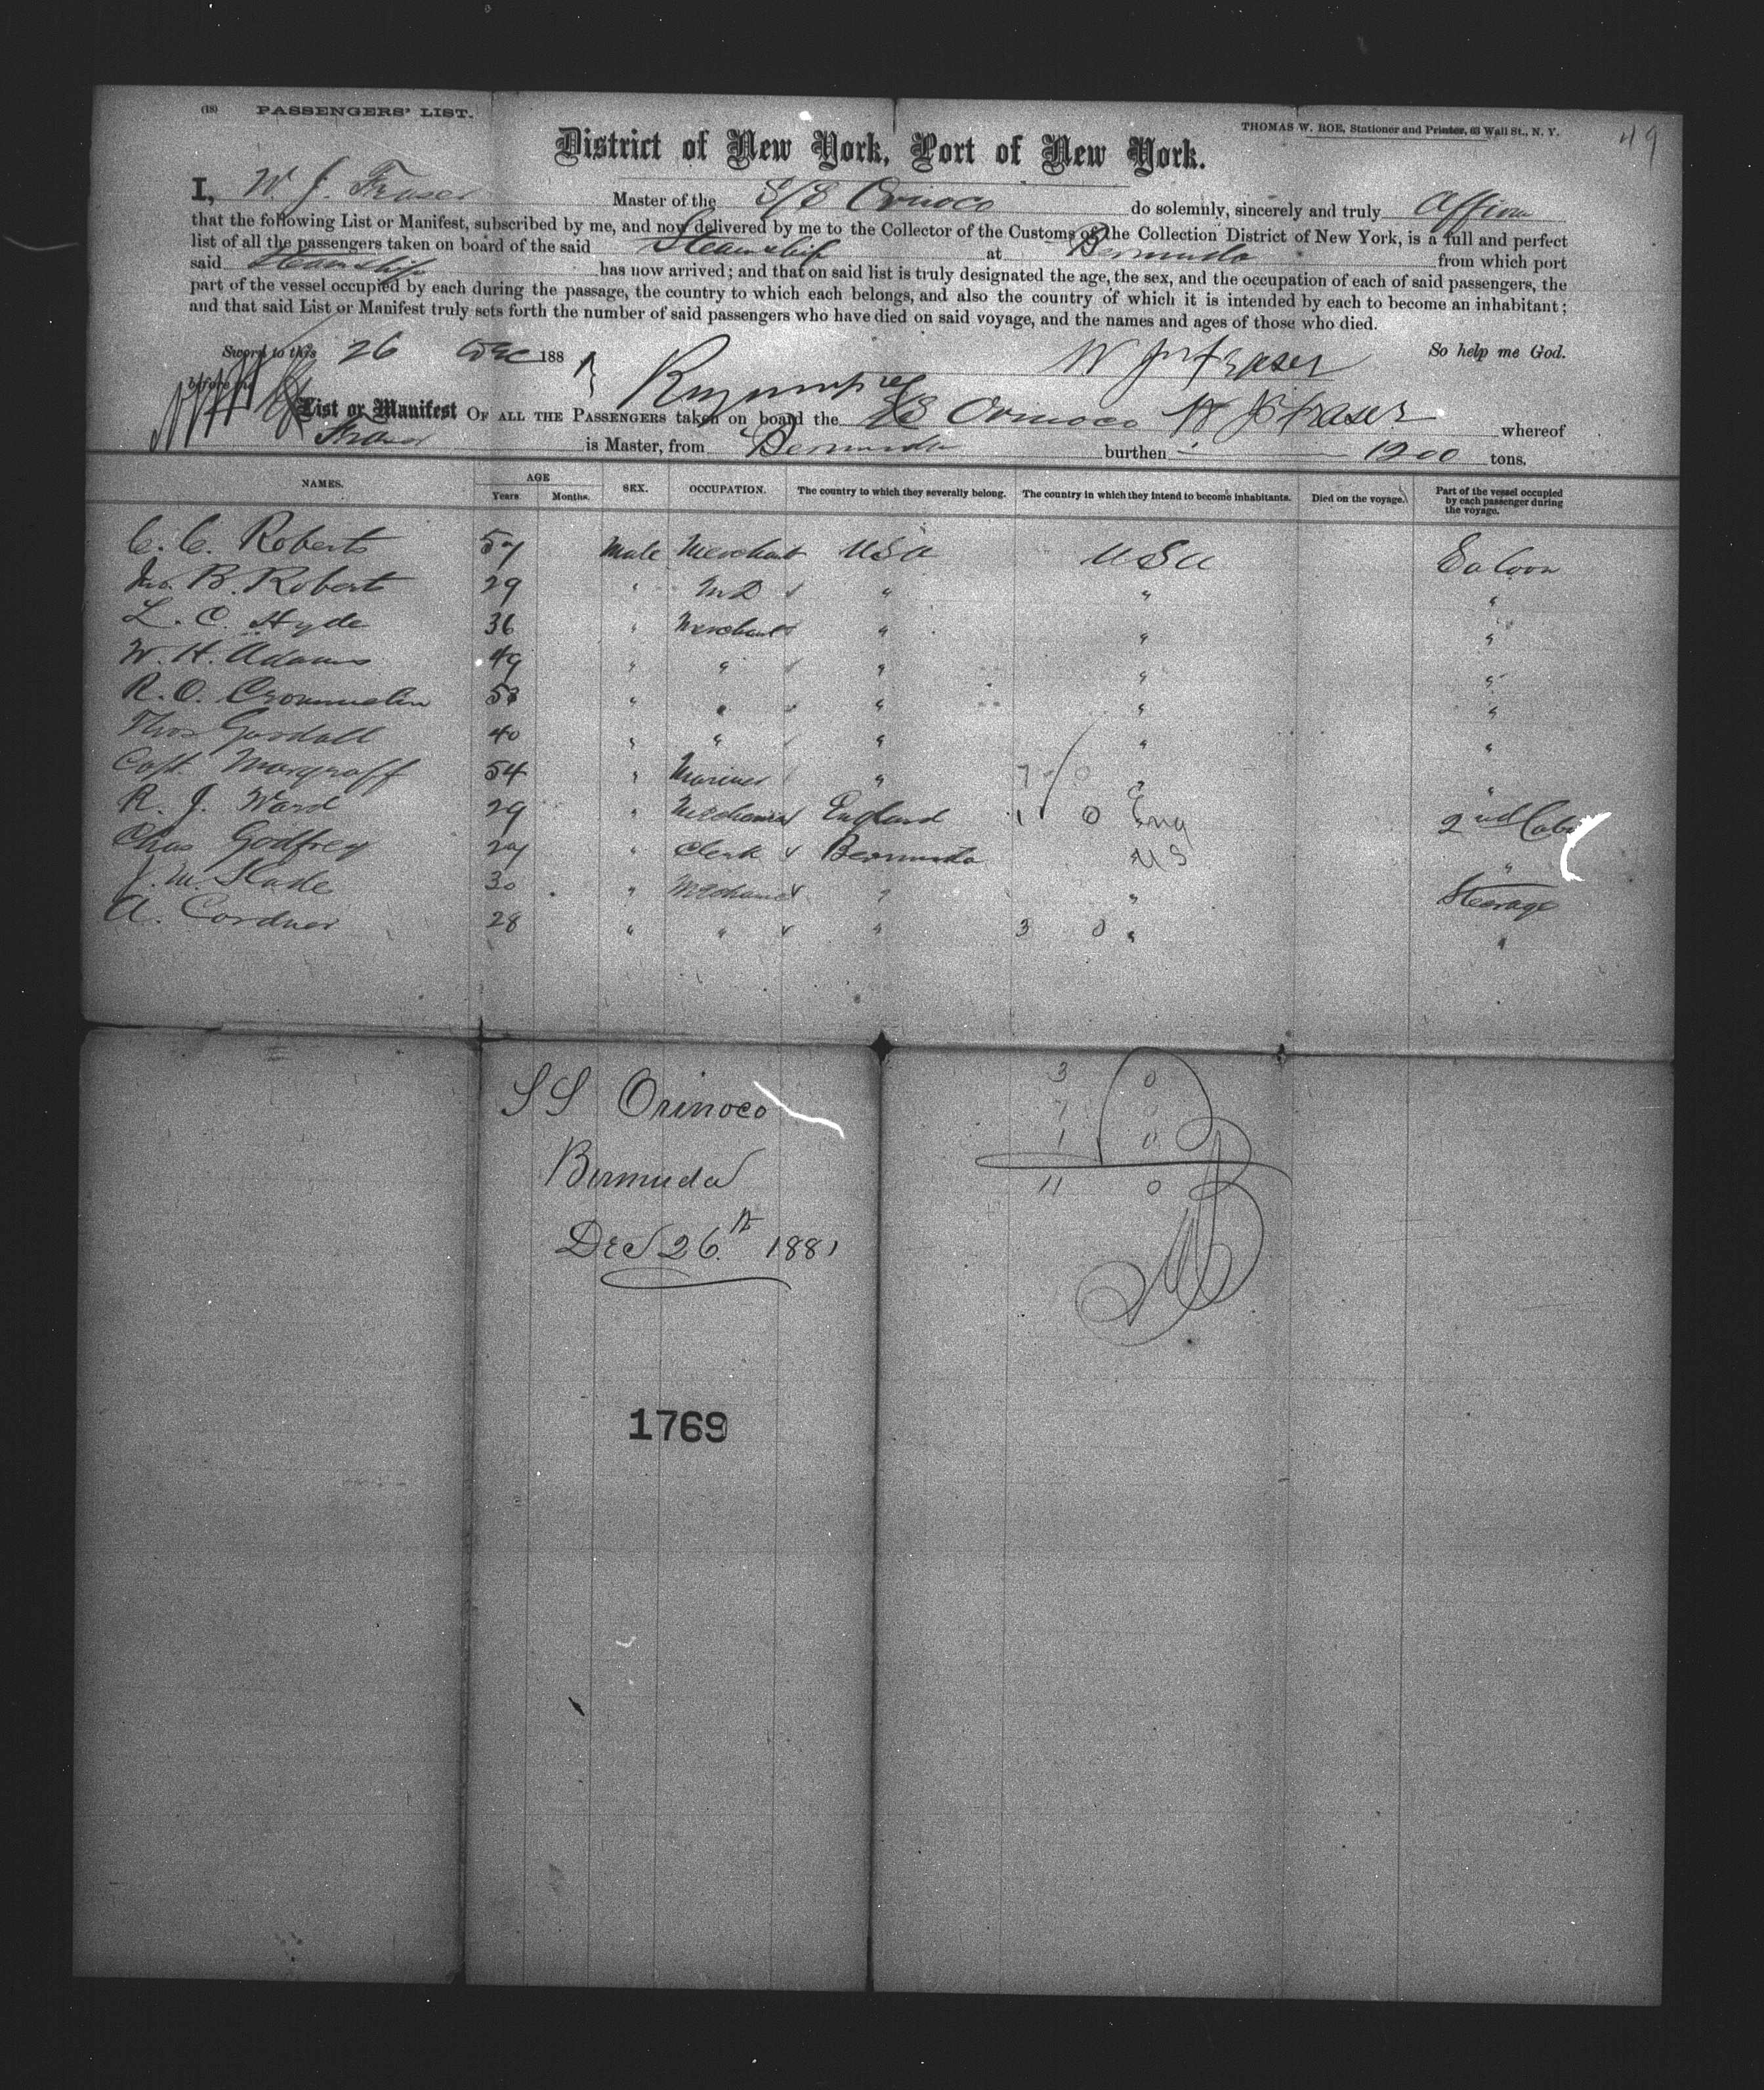 (18) PASSENGERS' LIST.
THOMAS W. ROE, Stationer and Printer, 63 Wall St., N. Y.
49
District of New York, Port of New York.
I, W. J. Fraser Master of the S/S Orinoco do solemnly, sincerely and truly Affirm
that the following List or Manifest, subscribed by me, and now delivered by me to the Collector of the Customs of the Collection District of New York, is a full and perfect
list of all the passengers taken on board of the said Steamship at Bermuda from which port
said Steamship has now arrived; and that on said list is truly designated the age, the sex, and the occupation of each of said passengers, the
part of the vessel occupied by each during the passage, the country to which each belongs, and also the country of which it is intended by each to become an inhabitant;
and that said List or Manifest truly sets forth the number of said passengers who have died on said voyage, and the names and ages of those who died.
Sworn to this 26 Dec 1881 W J Fraser So help me God.
before me
List or Manifest OF ALL THE PASSENGERS taken on board the SS Orinoco W J Fraser whereof
Fraser is Master, from Bermuda burthen 1200 tons.
NAMES. AGE Years. Months. SEX. OCCUPATION. The country to which they severally belong. The country in which they intend to become inhabitants. Died on the voyage. Part of the vessel occupied by each passenger during the voyage.
C. C. Roberts 57 Male Merchant USA USA Saloon
Jno. B. Robert 29 " MD " " "
L. C. Hyde 36 " Merchant " " "
W. H. Adams 49 " " " " "
R. O. Crommelin 53 " " " " "
Thos Goodall 40 " " " " "
Capt. Morgraff 54 " Mariner " 7 0 " "
R. J. Ward 29 " Mechanic England 1 0 Eng 2nd Cabin
Chas Godfrey 27 " Clerk Bermuda US "
J. M. Slade 30 " Mechanic " " Steerage
A. Corduer 28 " " " 3 0 " "
SS Orinoco
Bermuda
Dec 26th 1881
1769
3 0
7 0
1 0
11 0